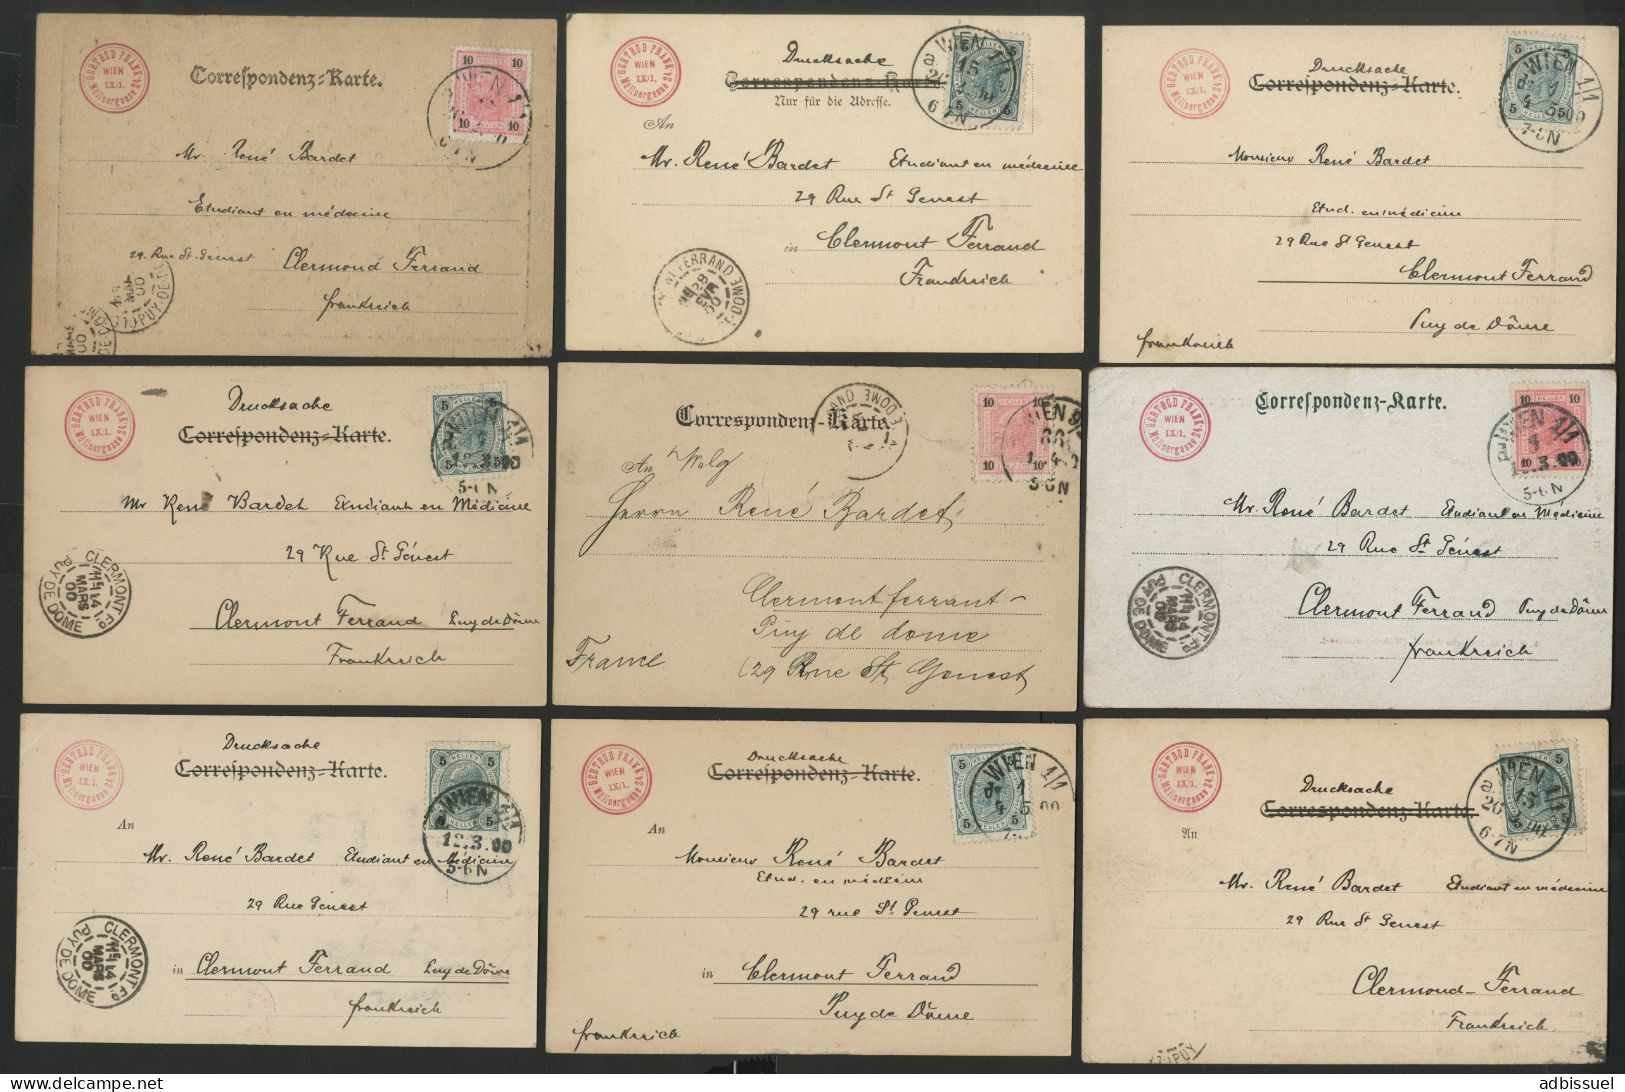 GERTRUD FRANK
WIEN
IX/1.
Müllnergasse 24.
Correspondenz-Karte.
10 10
10 10
WIEN 1/1
Mr. René Bardet
Etudiant en médecine
29 Rue St. Genest Clermond Ferrand
frankreich
MAI
00
PUY-DE-
GERTRUD FRANK
WIEN
IX/1.
Müllnergasse 24.
Drucksache
Correspondenz-Karte
Nur für die Adresse.
5 HELLER 5
WIEN 1/1
An
Mr. René Bardet Etudiant en médecine
29 Rue St Genest
in Clermont Ferrand
Frankreich
GERTRUD FRANK
WIEN
IX/1.
Müllnergasse 24.
Drucksache
Correspondenz-Karte.
WIEN 1/1
7-8N
Monsieur René Bardet
Etud. en médecine
29 Rue St Genest
Clermont Ferrand
Puy de Dôme
frankreich
GERTRUD FRANK
WIEN
IX/1.
Müllnergasse 24.
Drucksache
Correspondenz-Karte.
5-6N
Mr René Bardet Etudiant en Médicine
29 Rue St Génest
Clermont Ferrand Puy de Dôme
Frankreich
CLERMONT Fd
14
MARS
00
PUY DE DOME
Correspondenz-Karte.
10 10
10 10
5-6N
An Wolg
Herrn René Bardet,
Clermont ferrant-
Puy de dome
France
(29 Rue St Genest
GERTRUD FRANK
WIEN
IX/1.
Müllnergasse 24.
Correspondenz-Karte.
10 10
10 10
WIEN 1/1
5-6N
Mr. René Bardet Etudiant en Médicine
29 Rue St Génest
Clermont Ferrand Puy de Dôme
frankreich
CLERMONT Fd
14
MARS
00
PUY DE DOME
GERTRUD FRANK
WIEN
IX/1.
Müllnergasse 24.
Drucksache
Correspondenz-Karte.
5 HELLER 5
WIEN
12.3.00
5-6N
An
Mr. René Bardet Etudiant en Médicine
29 Rue Génest
in Clermont Ferrand Puy de Dôme
frankreich
CLERMONT Fd
14
MARS
00
PUY DE DOME
GERTRUD FRANK
WIEN
IX/1.
Müllnergasse 24.
Drucksache
Correspondenz-Karte.
WIEN 1/1
An
Monsieur René Bardet
Etud. en médecine
29 rue St Genest
in Clermont Ferrand
Puy de Dôme
frankreich
GERTRUD FRANK
WIEN
IX/1.
Müllnergasse 24.
Drucksache
Correspondenz-Karte.
WIEN 1/1
6-7N
An
Mr. René Bardet Etudiant en médecine
29 Rue St Genest
Clermond-Ferrand
Frankreich
PUY
adbissuel